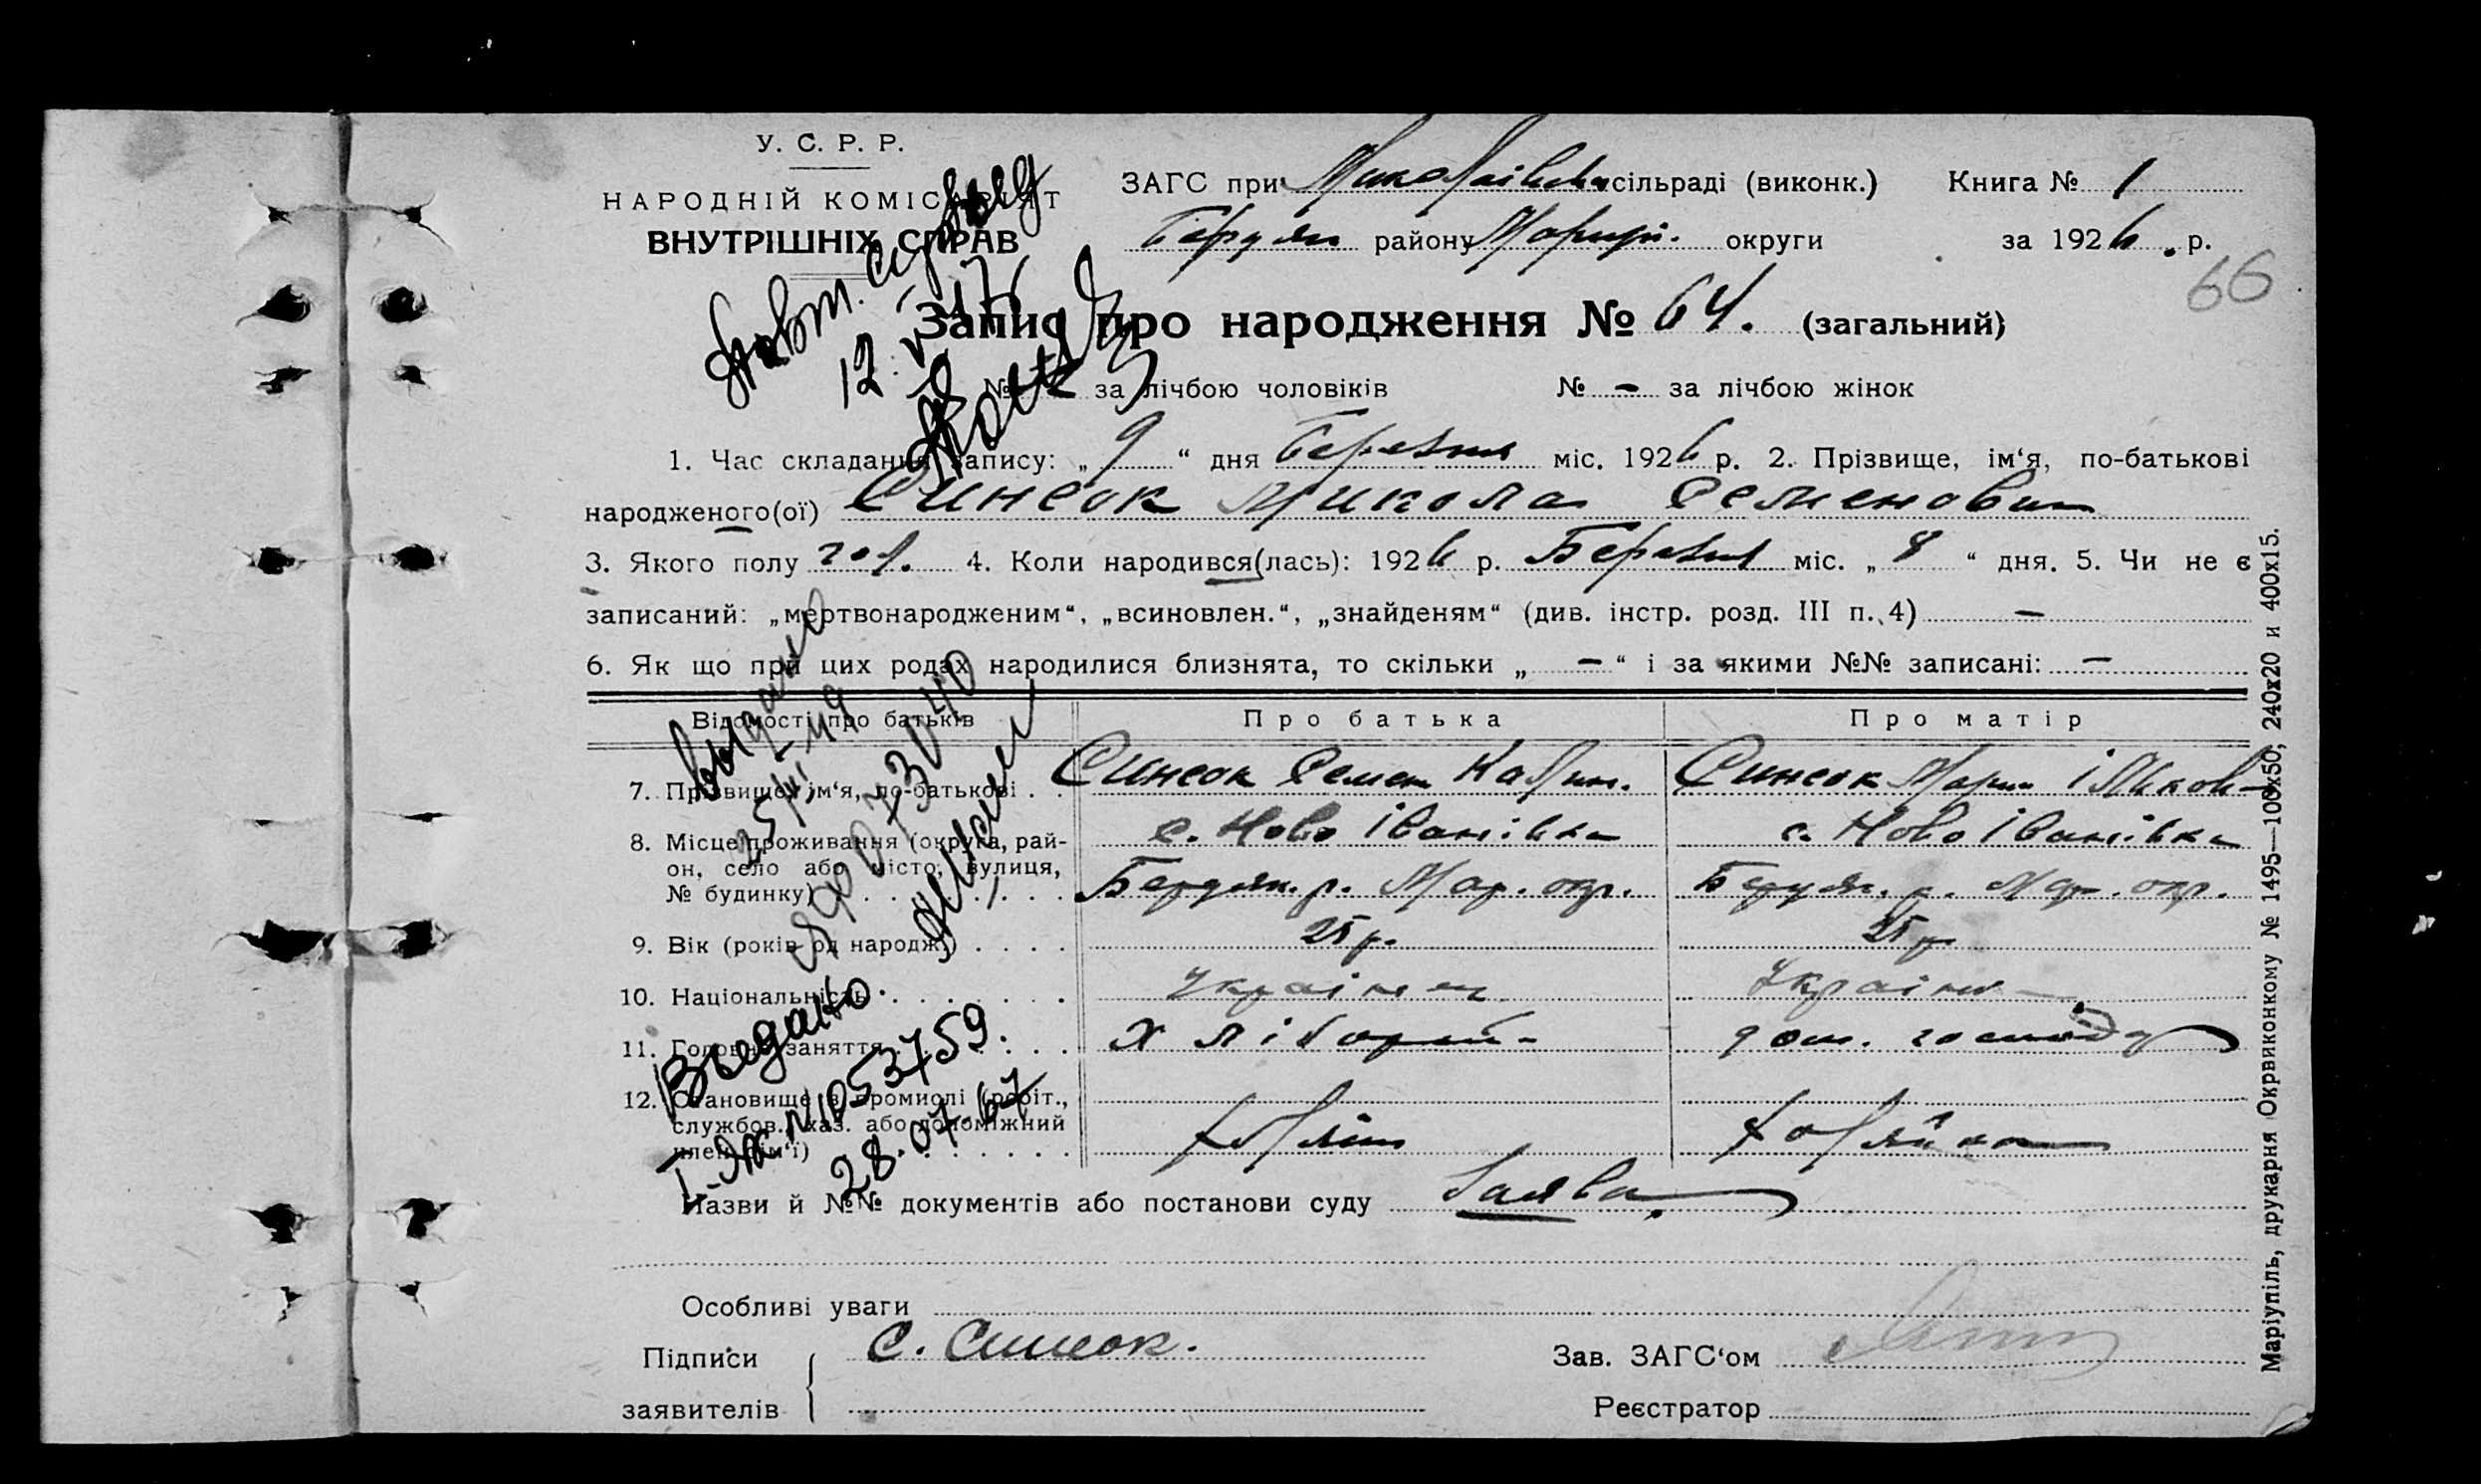 У. С. Р. Р.
НАРОДНІЙ КОМІСАРІЯТ
ВНУТРІШНІХ СПРАВ
ЗАГС при Миколаївськ сільраді (виконк.) Книга № 1
Бердян району Маріуп. округи за 1926 р.
66
Запис про народження № 64. (загальний)
№ за лічбою чоловіків № — за лічбою жінок
1. Час складання запису: „9“ дня Березня міс. 1926 р. 2. Прізвище, ім‘я, по-батькові
народженого(ої) Синеок Микола Семенович
3. Якого полу чол. 4. Коли народився(лась): 1926 р. Березня міс. „8“ дня. 5. Чи не є
записаний: „мертвонародженим“, „всиновлен.“, „знайденям“ (див. інстр. розд. III п. 4) —
6. Як що при цих родах народилися близнята, то скільки „—“ і за якими №№ записані: —
Відомості про батьків Про батька Про матір
7. Прізвище, ім‘я, по-батькові . . Синеок Семен Калин. Синеок Мария
8. Місце проживання (округа, рай-
он, село або місто, вулиця,
№ будинку)
с. Ново Іванівка с. Ново Іванівка
Бердян. р. Мар. окр. Бердян. р. Мар. окр.
9. Вік (років од народж.) . . . . 25 р. 25 р.
10. Національність Українец Україн
11. Головне заняття Хлібороб дом. господ
12. Становище в промислі (робіт.,
службов., хаз. або допоміжний
член сім‘ї)
Назви й №№ документів або постанови суду Заява
Особливі уваги
Підписи
заявителів
С. Синеок.
Зав. ЗАГС‘ом
Реєстратор
Повт.
12
Выдано
ЯФ 073040
Выдано.
№ 053759.
28.07.67
Маріупіль, друкарня Окрвиконкому № 1495—100х50; 240х20 и 400х15.